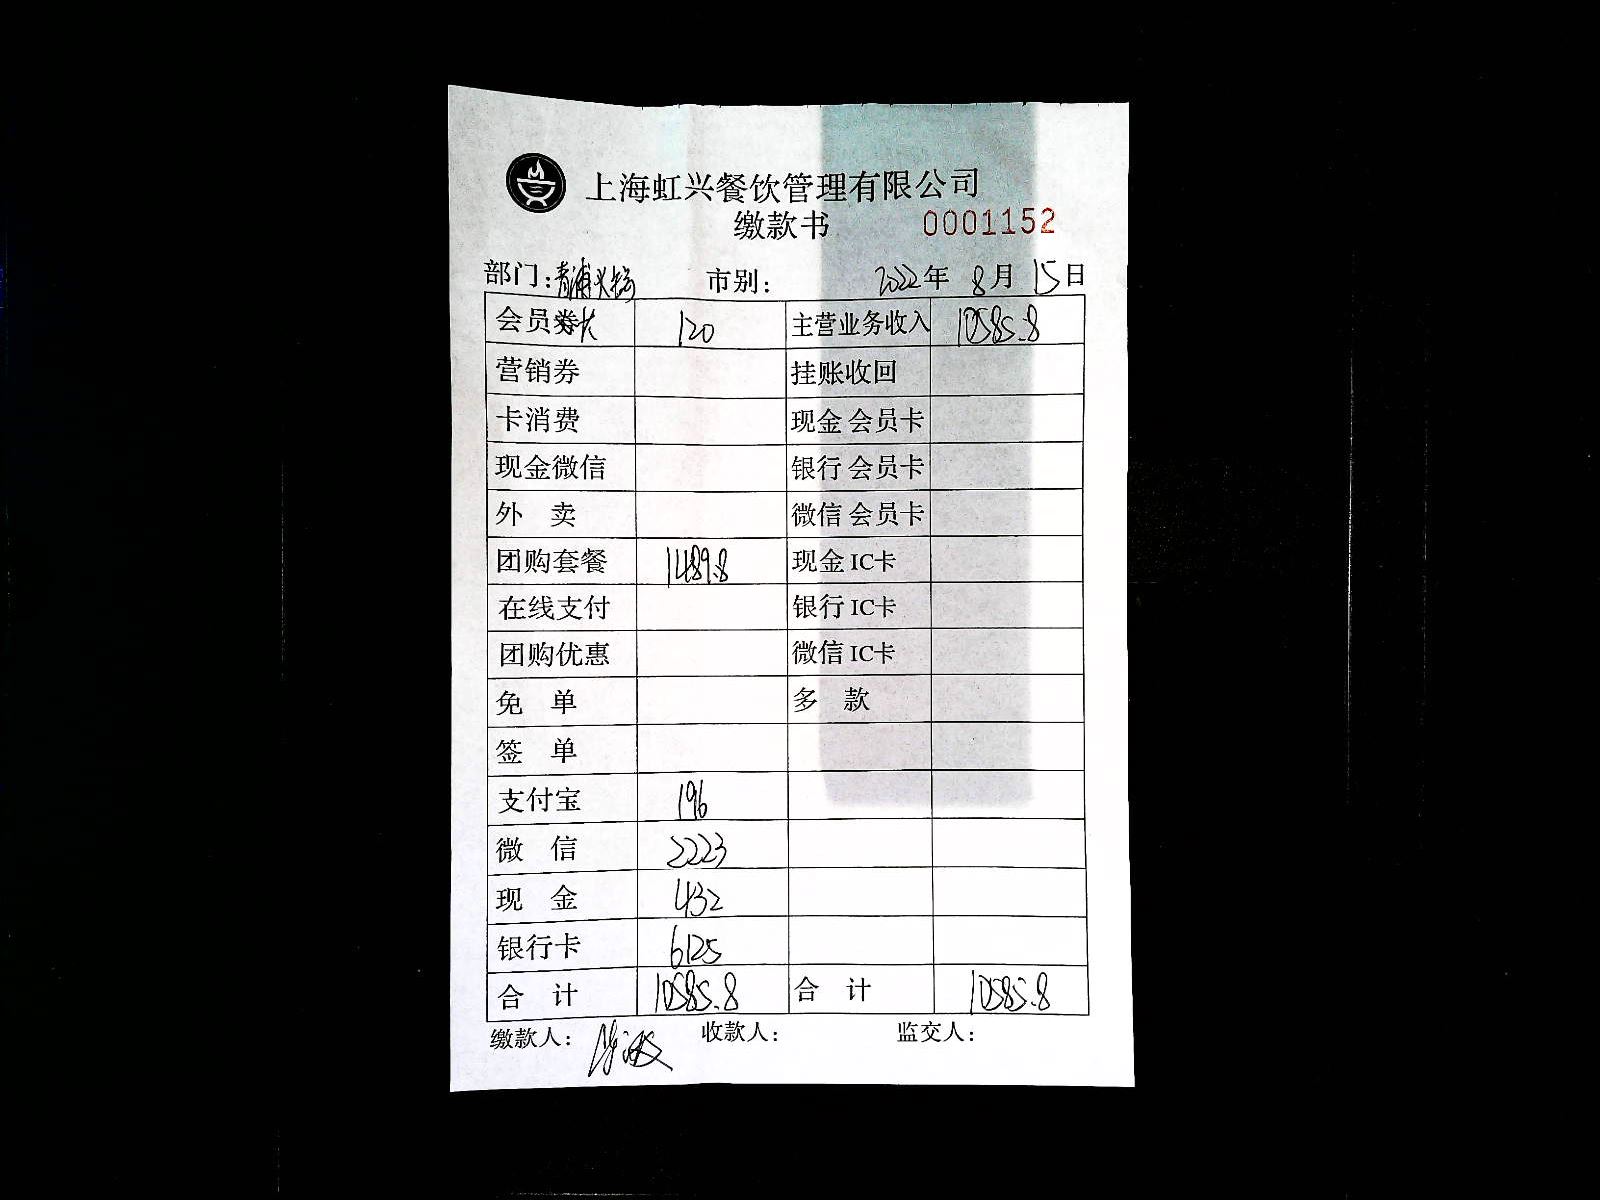 上海虹兴餐饮管理有限公司
缴款书 0001152
部门:青浦火锅 市别: 2022年 8月 15日
会员卡 120 主营业务收入 10585.8
营销券 挂账收回
卡消费 现金会员卡
现金微信 银行会员卡
外 卖 微信会员卡
团购套餐 1489.8 现金IC卡
在线支付 银行IC卡
团购优惠 微信IC卡
免 单 多 款
签 单
支付宝 196
微 信 2223
现 金 432
银行卡 6125
合 计 10585.8 合 计 10585.8
缴款人: 收款人: 监交人: